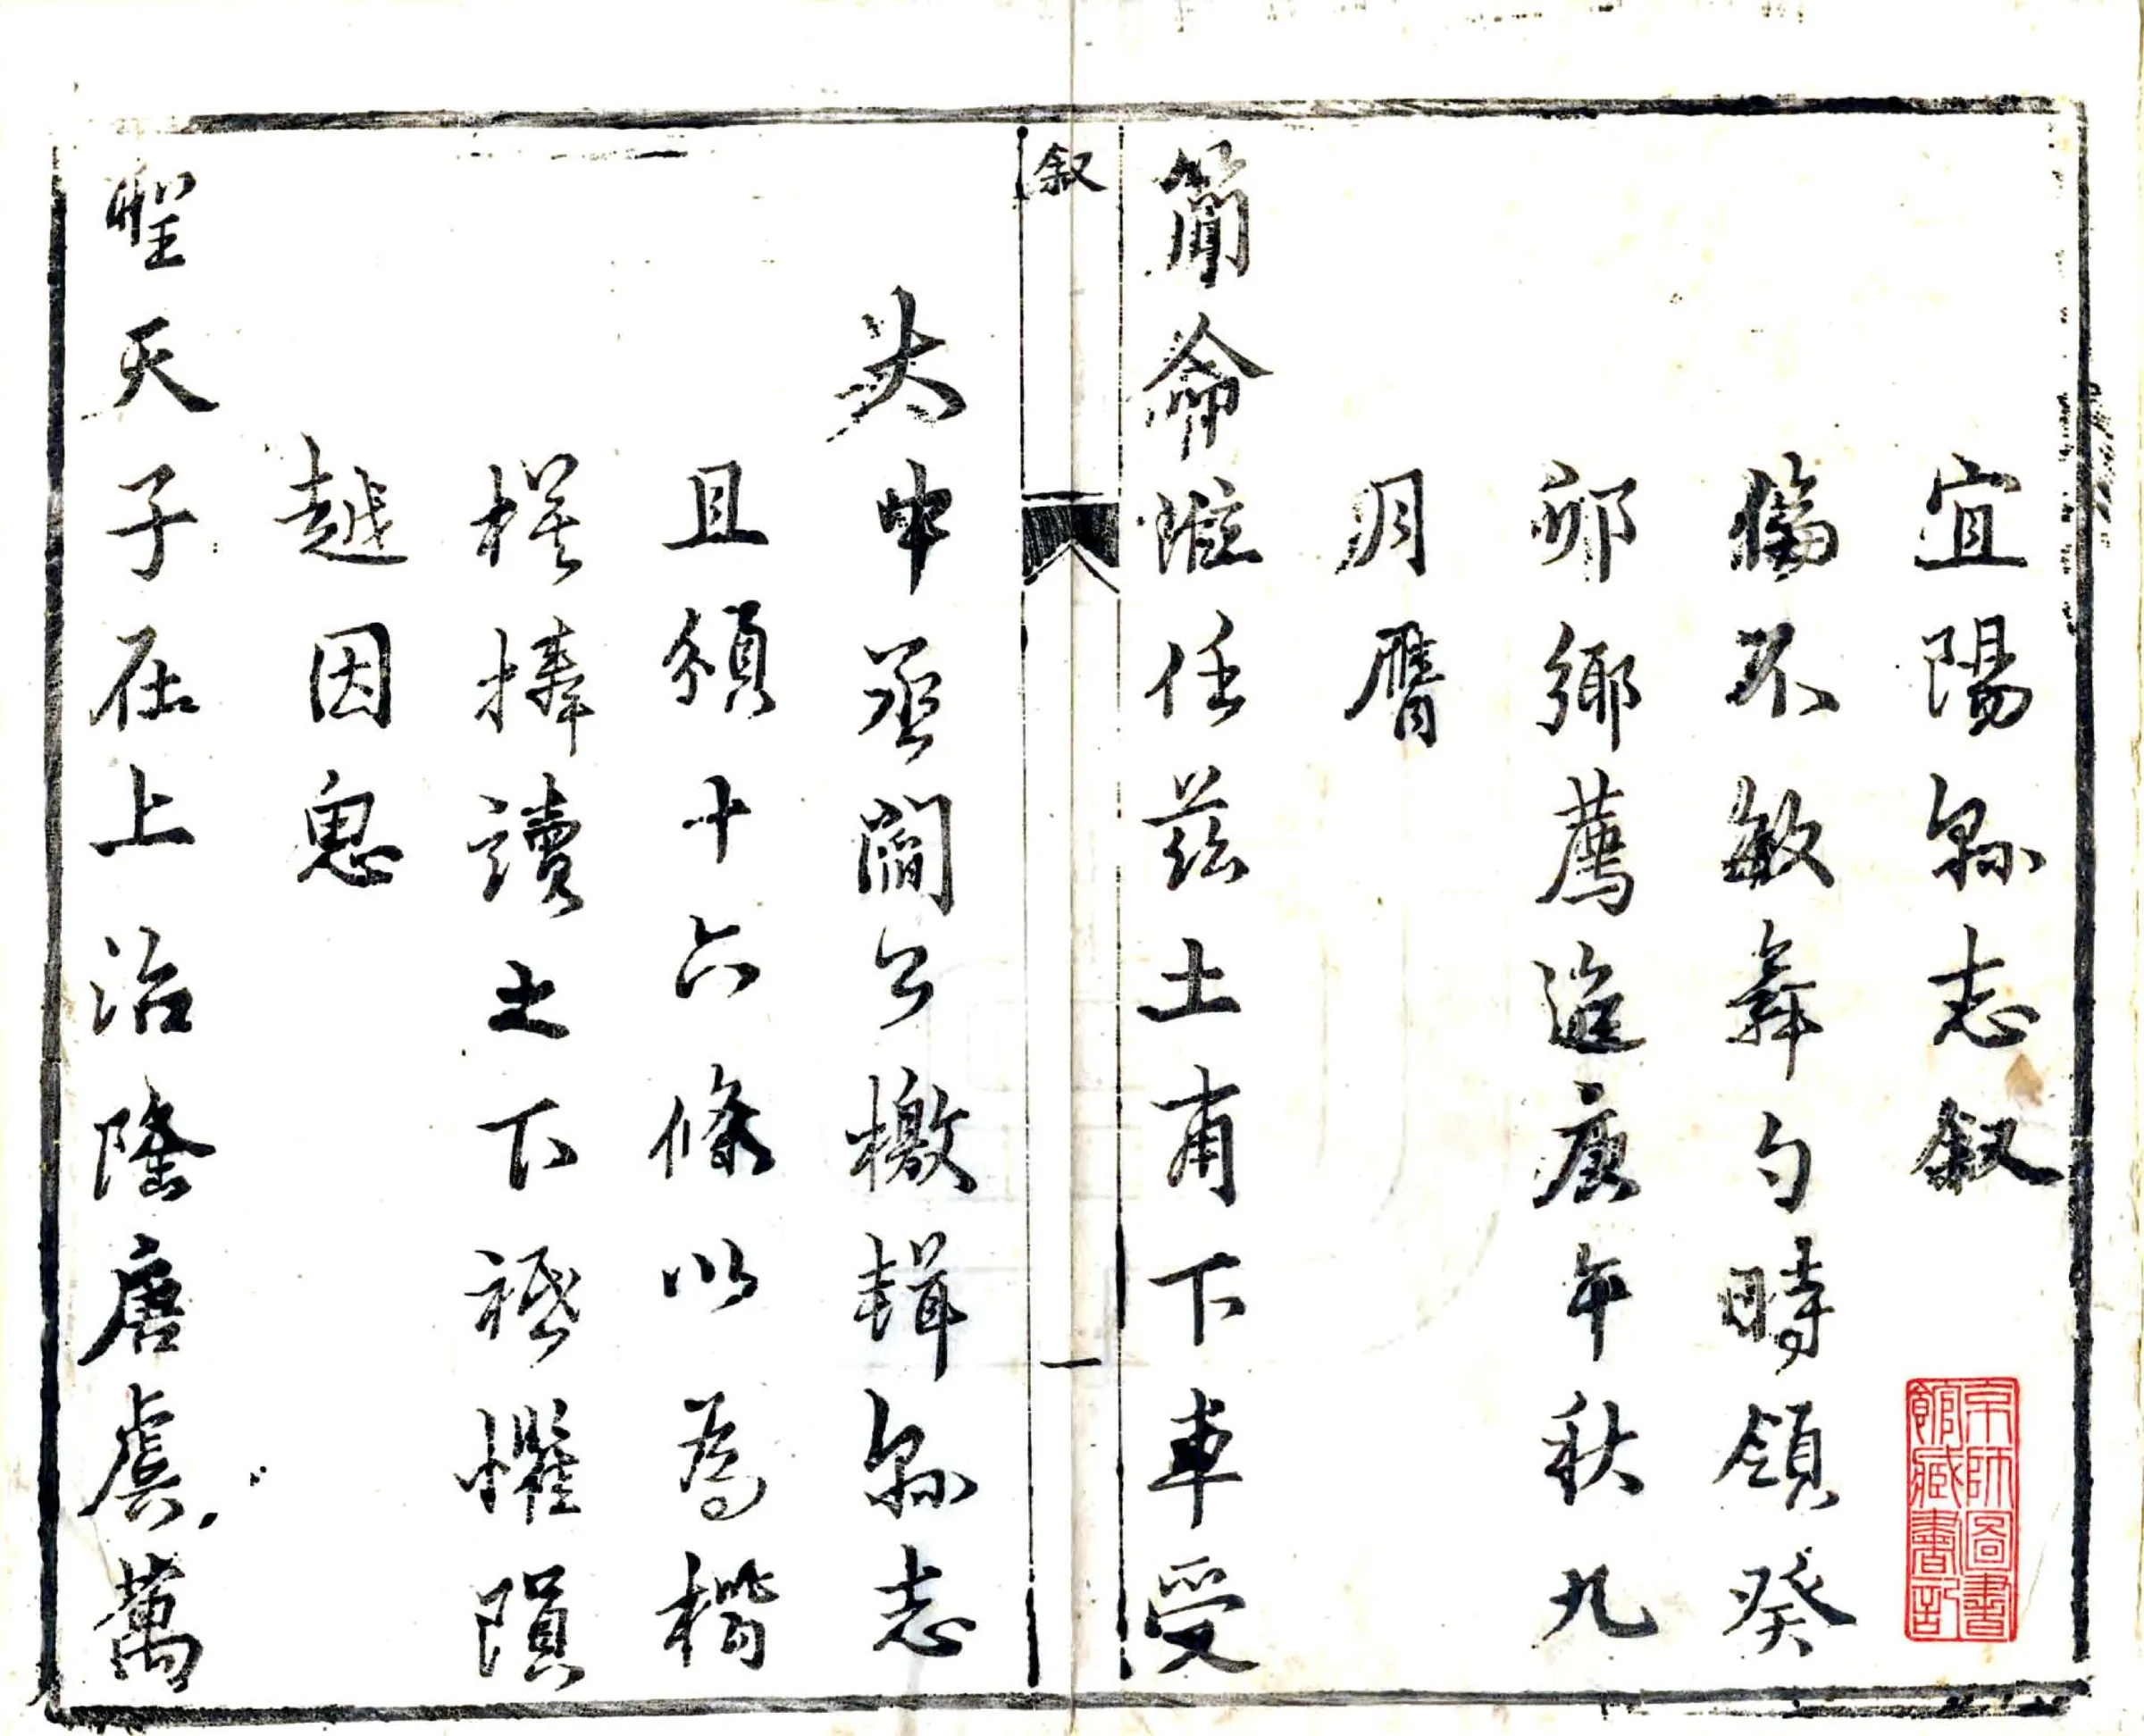 宜陽縣志叙
倫不敏舞勺時領癸
卯鄉薦迨庚午秋九
月膺
簡命涖任茲土甫下車受
大中丞閻公檄輯縣志
且頒十六條以為楷
模捧讀之下祗懼隕
越因思
聖天子在上治隆唐虞萬
叙
一
京師圖書
館藏書記